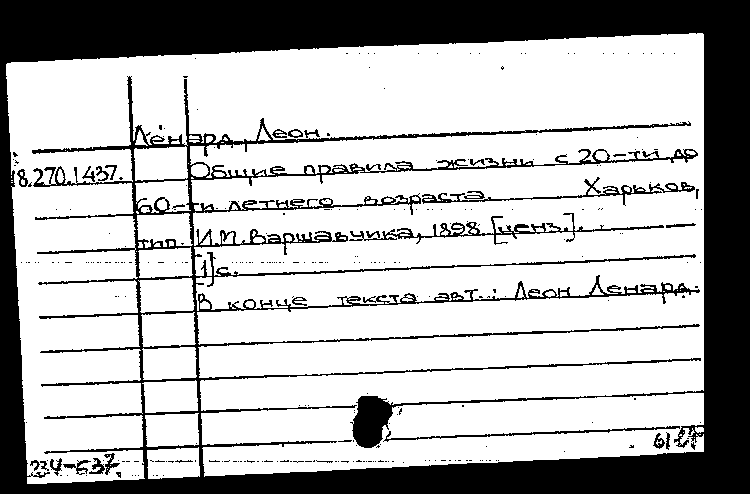 Ле́нард, Леон.
18.270.1437. Общие правила жизни с 20-ти до
60-ти летнего возраста. Харьков,
тип. И.П. Варшавчика, 1898 [ценз.].
[1] с.
В конце текста авт.: Леон Ленард.
234-637.